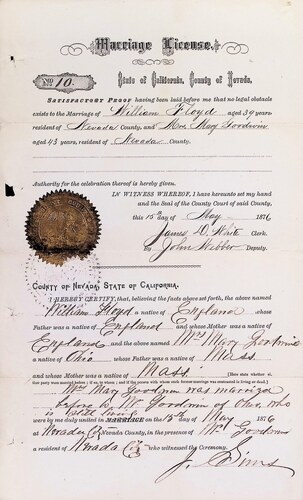 Marriage License.
NO. 10.
State of California, County of Nevada.
SATISFACTORY PROOF having been laid before me that no legal obstacle
exists to the Marriage of William Floyd aged 34 years
resident of Nevada County, and Mrs Mary Goodwin
aged 43 years, resident of Nevada County.
Authority for the celebration thereof is hereby given.
IN WITNESS WHEREOF, I have hereunto set my hand
and the Seal of the County Court of said County,
this 15th day of May 1876
James D. White Clerk.
John Webber Deputy.
COUNTY OF NEVADA, STATE OF CALIFORNIA.
I HEREBY CERTIFY, that, believing the facts above set forth, the above named
William Floyd a native of England whose
Father was a native of England and whose Mother was a native of
England and the above named Mrs Mary Goodwin
a native of Ohio whose Father was a native of Mass.
and whose Mother was a native of Mass. [Here state whether or
not party was married before; if any, to which; and if any, the person with whom such former marriage was contracted is living or dead.]
Mrs Mary Goodwin was married
before to Mr Goodwin of Ohio who
is still living
were by me duly united in MARRIAGE on the 15th day of May 1876
at Nevada City Nevada County, in the presence of Mr Goodwin
a resident of Nevada City who witnessed the Ceremony.